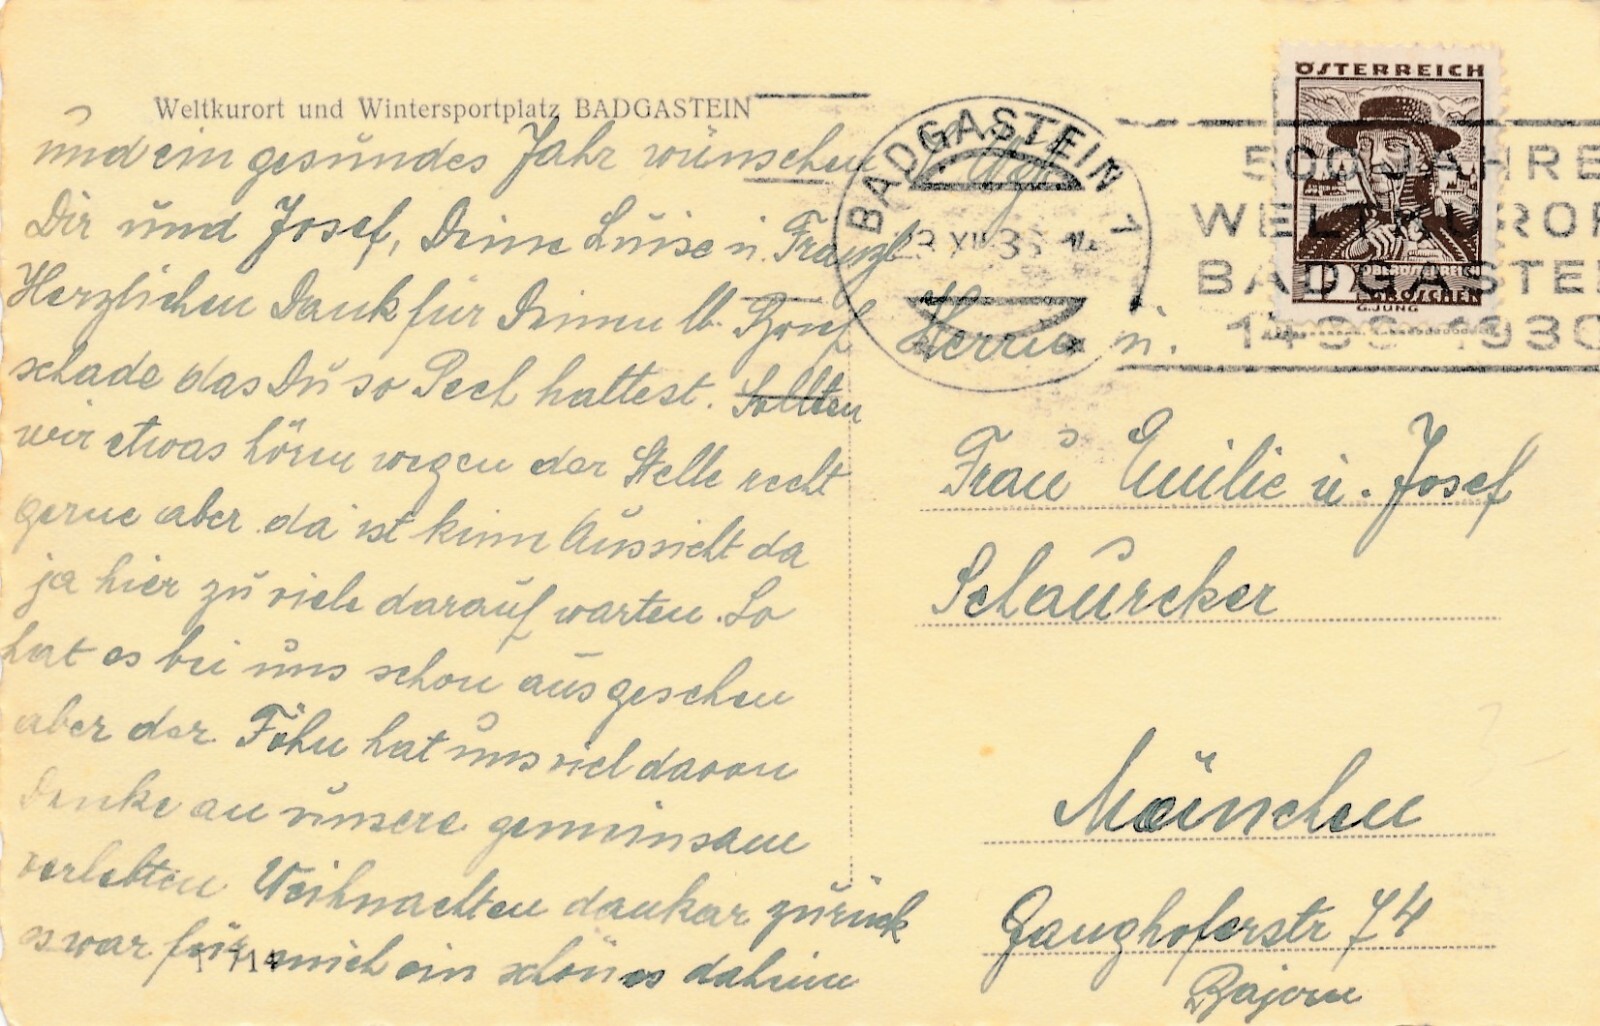 Weltkurort und Wintersportplatz BADGASTEIN
und ein gesundes Jahr wünschen
Dir und Josef, Deine Luise u. Franzl
Herzlichen Dank für Deinen lb. Brief
schade das Du so Pech hattest. Sollten
wir etwas hören wegen der Stelle recht
gerne aber da ist keine Aussicht da
ja hier zu viele darauf warten. So
hat es bei uns schon ausgesehen
aber der Föhn hat uns viel davon
Denke an unsere gemeinsam
verlebten Weihnachten dankar zurück
es war für mich ein schönes daheim
BADGASTEIN 1
XII 3
500 JAHRE
WELTKUROR
BADGASTEI
1436 1936
ÖSTERREICH
OBERÖSTERREICH
GROSCHEN
G.JUNG
Herrn u.
Frau Emilie u. Josef
Schaurcker
München
Ganghoferstr 74
Bajern